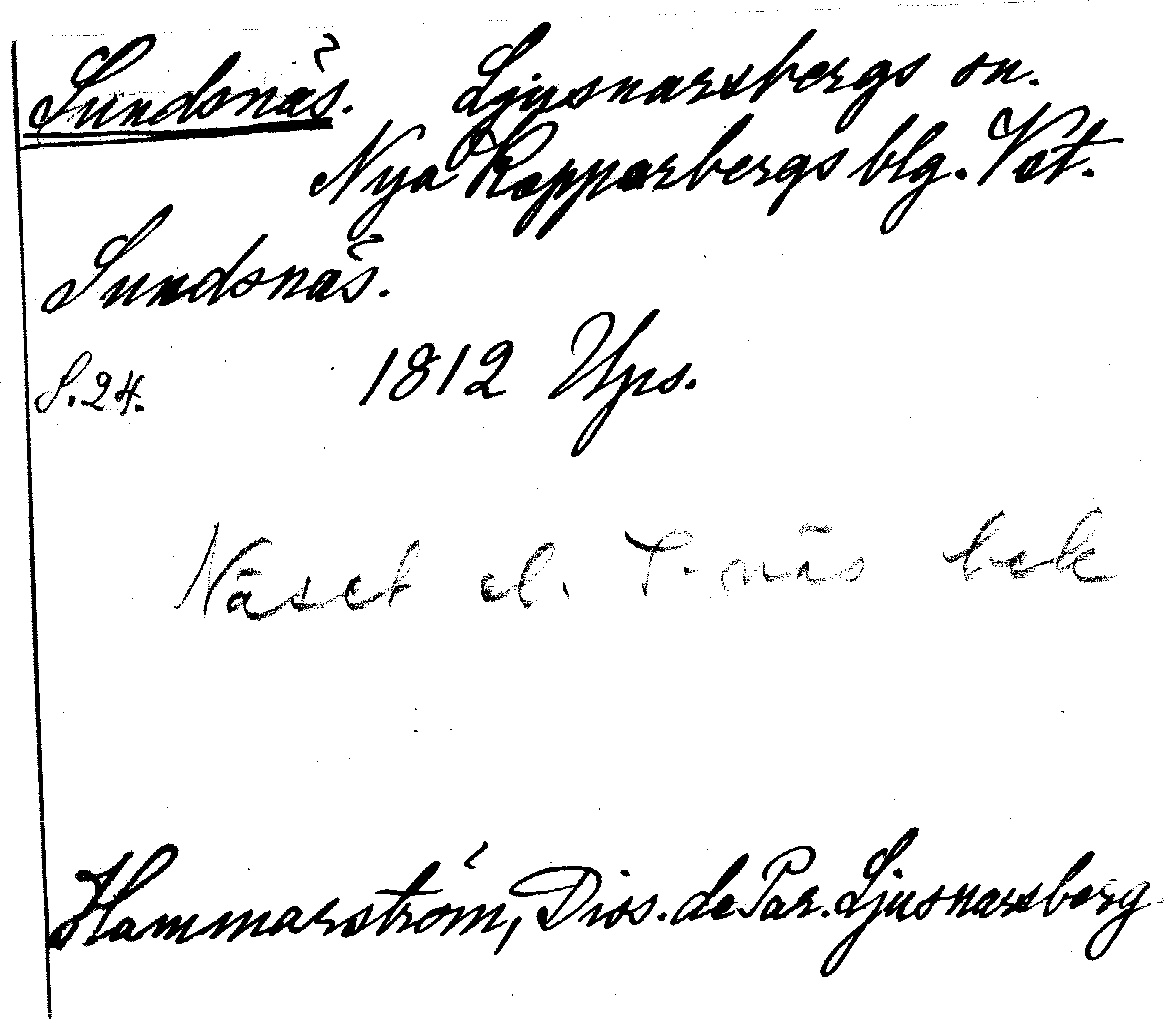 Sundsnäs. Ljusnarsbergs sn.
Nya Kopparbergs blg. Vst.
Sundsnäs.
S. 24. 1812 Ups.
Näset el. S-näs bek
Hammarström, Diss. de Par. Ljusnarsberg